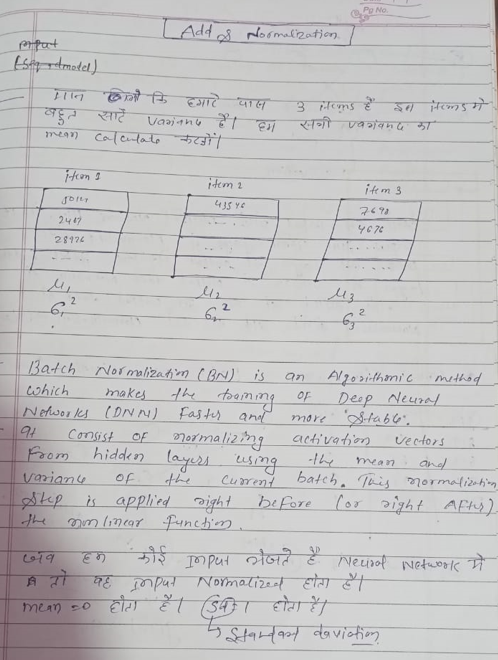 Pg No.
Add & Normalization
Input
(Seq, dmodel)
मान लीजिये कि हमारे पास 3 items हैं इन items में
बहुत सारे variance है। हम सभी variance का
mean calculate करेगें।
item 1
item 2
item 3
43546
7698
2467
4676
28976
.....
μ₁
μ₂
μ₃
σ₁²
σ₂²
σ₃²
Batch Normalization (BN) is an Algorithmic method
which makes the training of Deep Neural
Networks (DNN) Faster and more Stable.
It consist of normalizing activation vectors
From hidden layers using the mean and
variance of the current batch. This normalization
Step is applied right before (or right After)
the non linear function.
जब हम कोई Input भेजते है Neural Network में
तो वह Input Normalized होता है।
mean = 0 होता है। होता है।
↳ Standard daviation